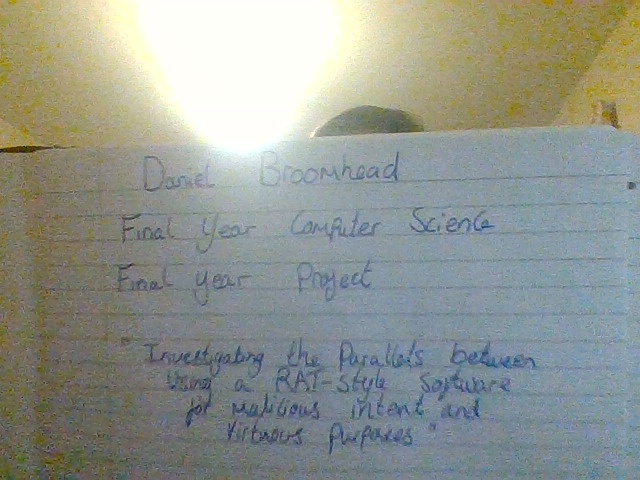 Daniel Broomhead
Final Year Computer Science
Final year Project
"Investigating the Parallels between
Using a RAT-Style Software
for malicious intent and
Virtuous purposes"